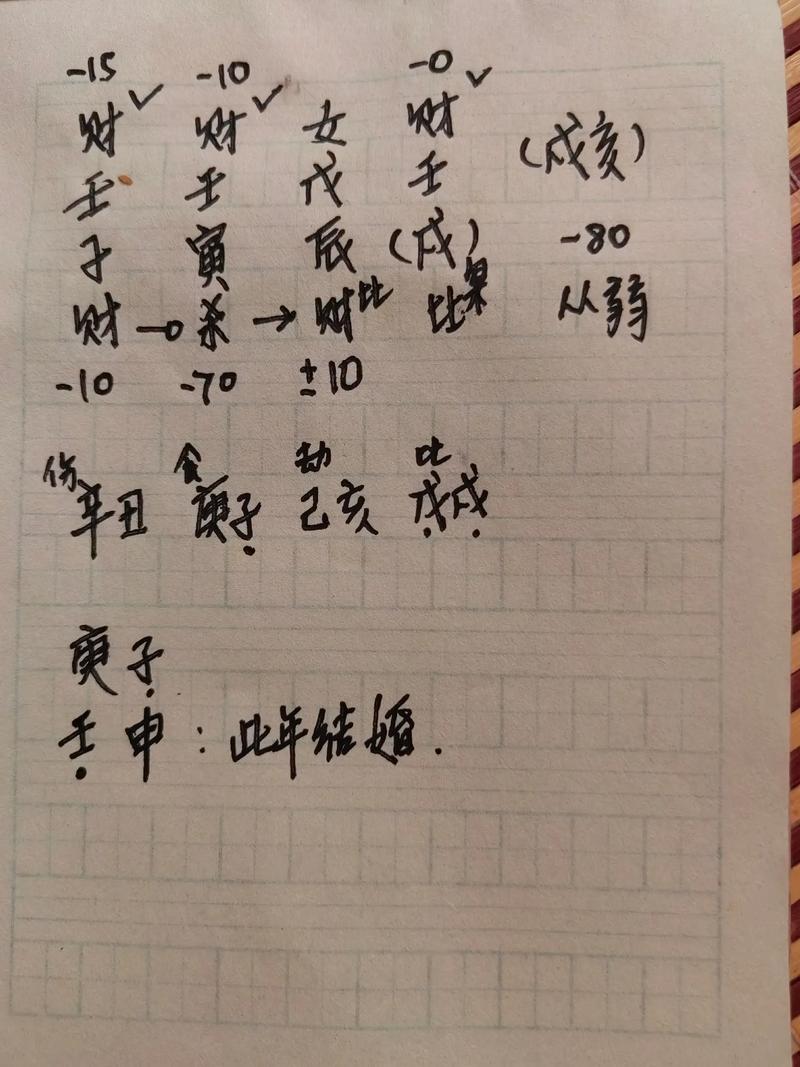 -15 -10 -0
财✓ 财✓ 女 财✓
壬 壬 戊 壬 (戌亥)
子 寅 辰 (戌) -80
财→杀→财比 比枭 从弱
-10 -70 ±10
伤 食 劫 比
辛丑 庚子 己亥 戊戌
庚子
壬申：此年结婚.